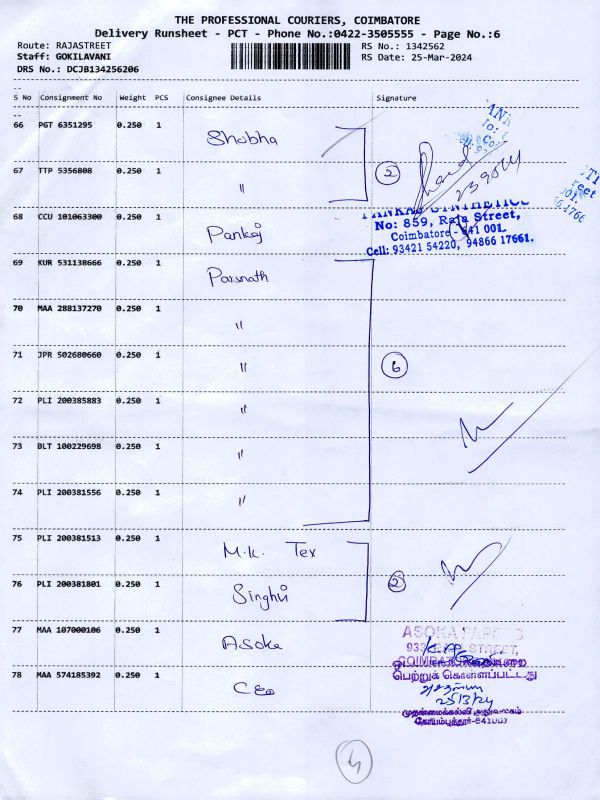 THE PROFESSIONAL COURIERS, COIMBATORE
Delivery Runsheet - PCT - Phone No.:0422-3505555 - Page No.:6
Route: RAJASTREET RS No.: 1342562
Staff: GOKILAVANI RS Date: 25-Mar-2024
DRS No.: DCJB134256206
S No Consignment No Weight PCS Consignee Details Signature
66 PGT 6351295 0.250 1 Shobha
67 TTP 5356808 0.250 1 " 2
68 CCU 101063300 0.250 1 Pankaj
No: 859, Raja Street,
Coimbatore - 641 001.
Cell: 93421 54220, 94866 17661.
69 KUR 531138666 0.250 1 Parsnath
70 MAA 288137270 0.250 1 "
71 JPR 502680660 0.250 1 " 6
72 PLI 200385883 0.250 1 "
73 BLT 100229698 0.250 1 "
74 PLI 200381556 0.250 1 "
75 PLI 200381513 0.250 1 M.K. Tex
76 PLI 200381801 0.250 1 Singhvi 2
77 MAA 107000106 0.250 1 Asoka
ASOKA
STREET,
78 MAA 574185392 0.250 1 CEO
பெற்றுக் கொள்ளப்பட்டது
25/3/24
முதன்மைக்கல்வி அலுவலகம்
கோயம்புத்தூர்-641001